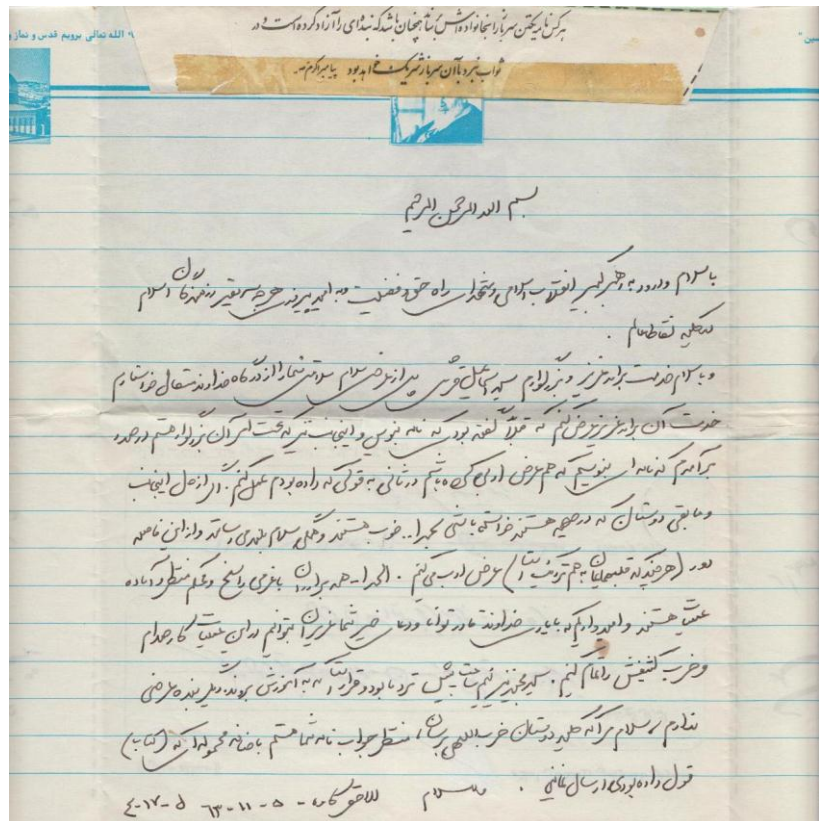 هرکس نامه یکتن سرباز را بخانواده اش برساند همچنان باشد که بنده ای را آزاد کرده است و در
ثواب نبرد با آن سرباز شریک خواهد بود پیامبر اکرم ص
الله تعالی برویم قدس و نماز
بسم الله الرحمن الرحیم
با سلام و درود به رهبر کبیر انقلاب اسلامی و شهدای راه حق و فضیلت و به امید پیروزی هر چه سریعتر رزمندگان اسلام
در کلیه نقاط عالم .
و با سلام خدمت برادر عزیز و بزرگوارم سید اسماعیل پس از عرض سلام سلامتی شما را از درگاه خداوند متعال خواستارم
خدمت آن برادر عزیز عرض کنم که قبلاً گفته بودی که نامه بنویس و اینجانب نیز که تحت امر آن بزرگوار هستم درصدد
برآمدم که نامه ای بنویسم که هم عرض ادبی کرده باشم در ثانی به قولی که داده بودم عمل کنم. اگر از حال اینجانب
و مابقی دوستان که در هستند خواسته باشی بحمدالله خوب هستند و همگی سلام میرسانند و از این فاصله
دور (هر چند که قلبهایمان به هم نزدیک است) عرض ادب می کنیم . الحمدالله همه برادران با عزمی راسخ و محکم منتظر و آماده
عملیات هستند و امیدواریم که با یاری خداوند قادر توانا و دعای خیر شما عزیزان بتوانیم در این عملیات کار صدام
و حزب کثیفش را تمام کنیم . سید مجید نیز نیم ساعت پیش نزد ما بود و قرار است که به آموزش بروند. دیگر بنده عرضی
ندارم سلام مرا به کلیه دوستان حزب اللهی برسان، منتظر جواب نامه شما هستم باضافه محموله ای که (کتاب)
قول داده بودی ارسال نمائی . والسلام ۵-۱۱-۶۳